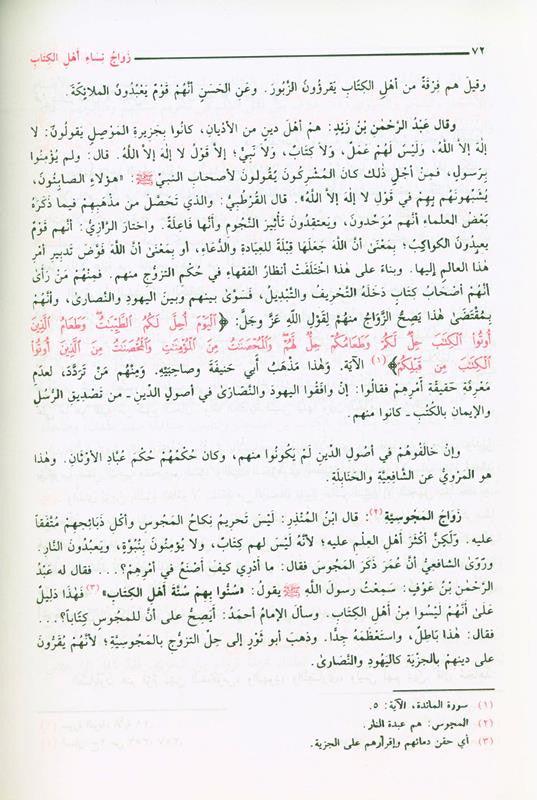 ٧٢ زَوَاجُ نِسَاءِ أَهْلِ الكِتَابِ
وقيلَ هم فِرْقَةٌ من أَهْلِ الكِتَابِ يَقرؤُونَ الزَّبُورَ. وعَنِ الحَسَنِ أَنَّهُمْ قَوْمٌ يَعْبُدُونَ الملائِكَةَ.
وقال عَبْدُ الرَّحْمٰنِ بْنُ زَيْدٍ: هم أَهْلُ دينٍ من الأديَانِ، كانُوا بجَزيرةِ المَوْصِلِ يَقولُونَ: لا
إلٰهَ إلاَّ اللَّهُ، وَلَيْسَ لَهُمْ عَمَلٌ، وَلاَ كِتَابٌ، وَلاَ نَبِيٌّ؛ إلاَّ قَوْلُ لا إلٰهَ إلاَّ اللَّهُ. قال: ولم يُؤْمِنُوا
بِرسولٍ، فمِنْ أَجْلِ ذلك كانَ المُشْرِكُونَ يَقُولُونَ لأصحابِ النَّبيِّ ﷺ: «هؤلاءِ الصابئونَ،
يُشَبِّهونَهُم بِهِمْ في قَوْلِ لا إلٰهَ إلاَّ اللَّهُ». قال القُرْطُبيُّ: والذي تَحَصَّلَ من مذْهَبِهِمْ فيما ذَكَرَهُ
بَعْضُ العلماءِ أنَّهم مُوَحِّدُونَ، ويَعتقِدُونَ تَأْثِيرَ النُّجُومِ وأنَّها فَاعِلَةٌ. واختارَ الرَّازِيُّ: أنهم قَوْمٌ
يعبدُونَ الكواكِبَ؛ بِمَعْنَى أنَّ اللَّهَ جَعَلَهَا قِبْلَةً للعِبَادَةِ والدُّعَاءِ، أو بِمَعْنَى أنَّ اللَّهَ فَوَّضَ تدبيرَ أَمْرِ
هٰذا العالمِ إليها. وبناءً على هٰذا اخْتَلَفَتْ أنظارُ الفقهاءِ في حُكْمِ التزوُّجِ منهم. فمِنْهُمْ مَنْ رَأَىٰ
أنَّهُمْ أصْحَابُ كِتَابٍ دَخَلَهُ التَّحْريفُ والتَّبْدِيلُ، فَسَوَّىٰ بينهم وبينَ اليهودِ والنَّصارىٰ، وأنَّهُمْ
بِمُقْتَضَىٰ هٰذا يَصِحُّ الزَّوَاجُ منهُمْ لِقَوْلِ اللَّهِ عَزَّ وجَلَّ: ﴿ٱلْيَوْمَ أُحِلَّ لَكُمُ ٱلطَّيِّبَٰتُ ۖ وَطَعَامُ ٱلَّذِينَ
أُوتُوا۟ ٱلْكِتَٰبَ حِلٌّ لَّكُمْ وَطَعَامُكُمْ حِلٌّ لَّهُمْ ۖ وَٱلْمُحْصَنَٰتُ مِنَ ٱلْمُؤْمِنَٰتِ وَٱلْمُحْصَنَٰتُ مِنَ ٱلَّذِينَ أُوتُوا۟
ٱلْكِتَٰبَ مِن قَبْلِكُمْ﴾(١) الآيَةَ. وَهٰذا مَذْهَبُ أَبي حَنيفَةَ وصاحِبَيْهِ. ومِنْهُمْ مَن تَرَدَّدَ، لعدَمِ
مَعْرِفَةِ حقيقَةِ أَمْرِهِمْ فقالُوا: إنْ وافَقُوا اليهودَ والنَّصَارَىٰ في أصولِ الدِّينِ - من تَصْدِيقِ الرُّسُلِ
والإيمانِ بالكُتُبِ - كانوا منهم.
وإنْ خالَفُوهُمْ في أصُولِ الدِّينِ لَمْ يَكُونُوا منهم، وكان حُكْمُهُمْ حُكْمَ عُبَّادِ الأوْثَانِ. وهٰذا
هو المَرْوِيُّ عن الشَّافِعيَّةِ والحَنَابِلَةِ.
زَوَاجُ المَجُوسيَّةِ(٢): قال ابْنُ المُنْذِرِ: لَيْسَ تَحريمُ نِكاحِ المَجُوسِ وأكْلِ ذَبَائِحِهِمْ مُتَّفَقاً
عليه. ولَكِنْ أكْثَرُ أَهْلِ العِلْمِ عليه؛ لأنَّهُ لَيْسَ لهم كِتَابٌ، ولا يُؤْمِنُونَ بِنُبُوَّةٍ، ويَعبُدُونَ النَّارَ.
ورَوَىٰ الشافعيُّ أنَّ عُمَرَ ذَكَرَ المَجُوسَ فقال: ما أدْرِي كيفَ أصْنَعُ في أمْرِهِمْ؟... فقال له عَبْدُ
الرَّحْمٰنِ بْنُ عَوْفٍ: سَمِعْتُ رسولَ اللَّهِ ﷺ يقولُ: «سُنُّوا بِهِمْ سُنَّةَ أهْلِ الكِتابِ»(٣) فَهٰذا دَلِيلٌ
عَلَىٰ أنَّهُمْ لَيْسُوا مِنْ أهْلِ الكِتابِ. وسألَ الإمامُ أحمدُ: أيَصِحُّ على أنَّ للمَجُوسِ كِتاباً؟...
فقال: هٰذا بَاطِلٌ، واسْتَعْظَمَهُ جِدًّا. وذهَبَ أبو ثَوْرٍ إلى حِلِّ التَّزوُّجِ بالمَجُوسيَّةِ؛ لأنَّهُمْ يُقَرُّونَ
على دينِهِمْ بالجِزْيَةِ كاليَهُودِ والنَّصَارىٰ.
(١) سورة المائدة، الآية: ٥.
(٢) المجوس: هم عبدة النار.
(٣) أي حقن دمائهم وإقرارهم على الجزية.